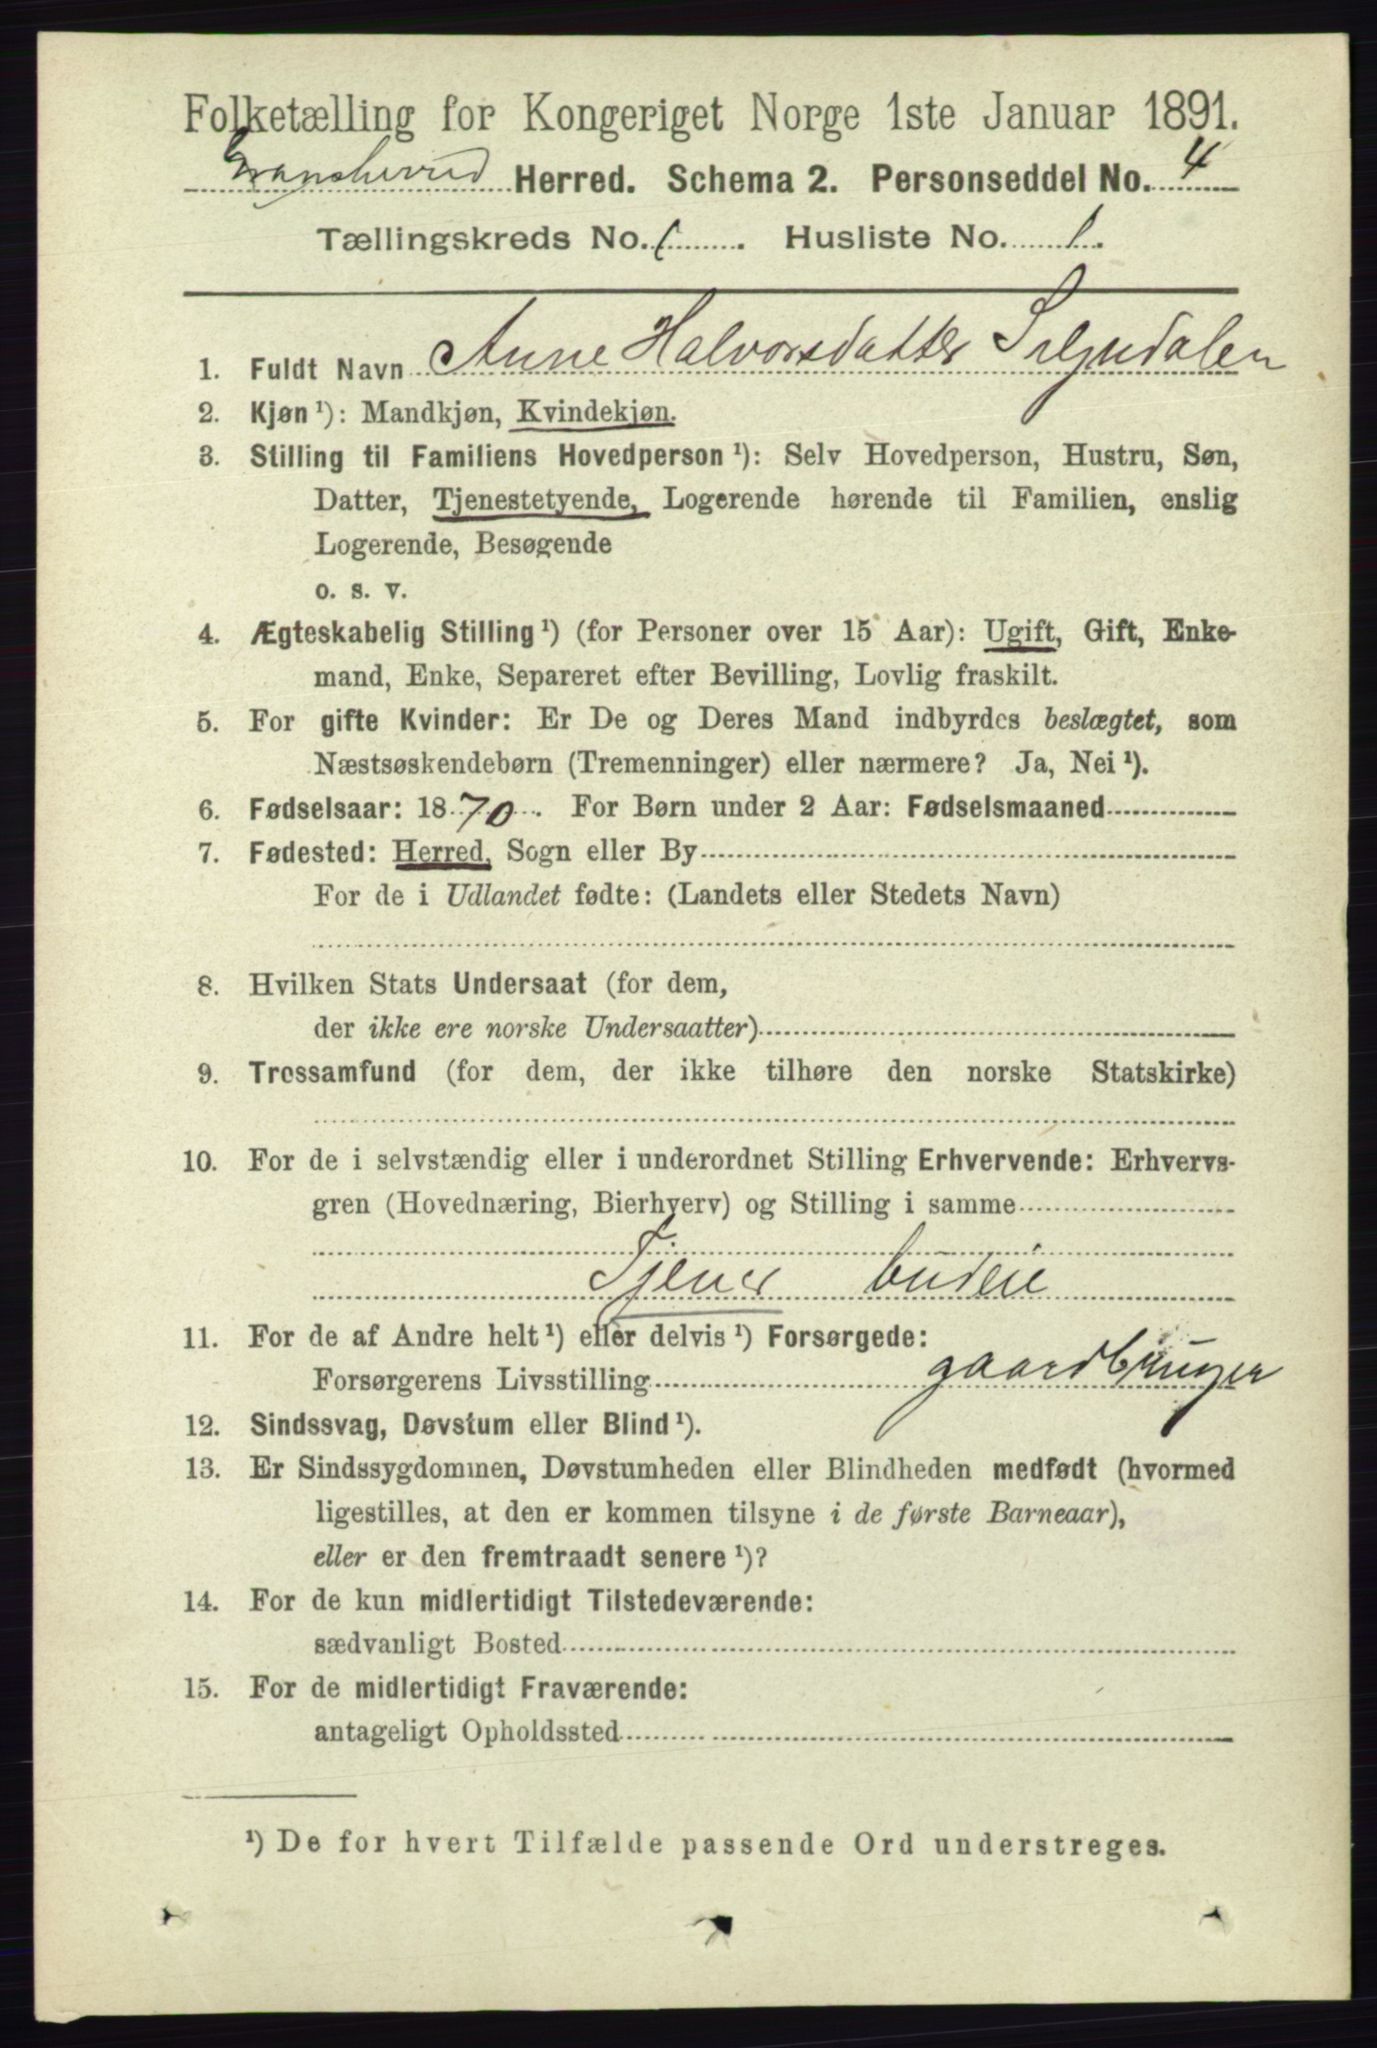 Folketælling for Kongeriget Norge 1ste Januar 1891.
Gransherred Herred. Schema 2. Personseddel No. 4
Tællingskreds No. 1. Husliste No. 1.
1. Fuldt Navn Anne Halvorsdatter
2. Kjøn ¹): Mandkjøn, Kvindekjøn.
3. Stilling til Familiens Hovedperson ¹): Selv Hovedperson, Hustru, Søn,
Datter, Tjenestetyende, Logerende hørende til Familien, enslig
Logerende, Besøgende
o. s. v.
4. Ægteskabelig Stilling ¹) (for Personer over 15 Aar): Ugift, Gift, Enke-
mand, Enke, Separeret efter Bevilling, Lovlig fraskilt.
5. For gifte Kvinder: Er De og Deres Mand indbyrdes beslægtet, som
Næstsøskendebørn (Tremenninger) eller nærmere? Ja, Nei ¹).
6. Fødselsaar: 1870. For Børn under 2 Aar: Fødselsmaaned
7. Fødested: Herred, Sogn eller By
For de i Udlandet fødte: (Landets eller Stedets Navn)
8. Hvilken Stats Undersaat (for dem,
der ikke ere norske Undersaatter)
9. Trossamfund (for dem, der ikke tilhøre den norske Statskirke)
10. For de i selvstændig eller i underordnet Stilling Erhvervende: Erhvervs-
gren (Hovednæring, Bierhverv) og Stilling i samme
Tjener budeie
11. For de af Andre helt ¹) eller delvis ¹) Forsørgede:
Forsørgerens Livsstilling gaardbruger
12. Sindssvag, Døvstum eller Blind ¹).
13. Er Sindssygdommen, Døvstumheden eller Blindheden medfødt (hvormed
ligestilles, at den er kommen tilsyne i de første Barneaar),
eller er den fremtraadt senere ¹)?
14. For de kun midlertidigt Tilstedeværende:
sædvanligt Bosted
15. For de midlertidigt Fraværende:
antageligt Opholdssted
¹) De for hvert Tilfælde passende Ord understreges.